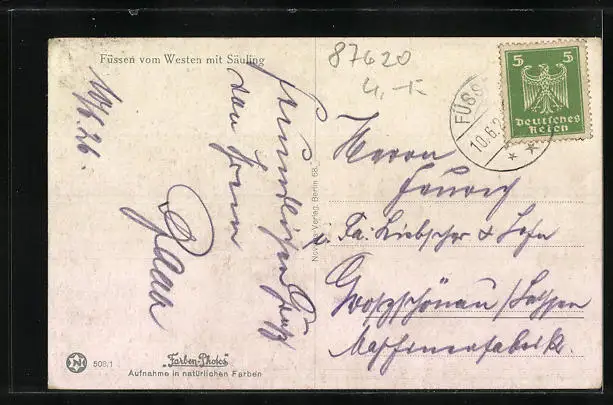 Füssen vom Westen mit Säuling
10/6.26.
freundlichen Gruß
von Ihrem
87620
4,-
FÜSS
10.6.2
5 5
Deutsches
Reich
Herrn
i. Fa: Liebscher & Sohn
Großschönau / Sachsen
Maschinenfabrik.
Verlag, Berlin 68.
508/1
"Farben-Photos"
Aufnahme in natürlichen Farben